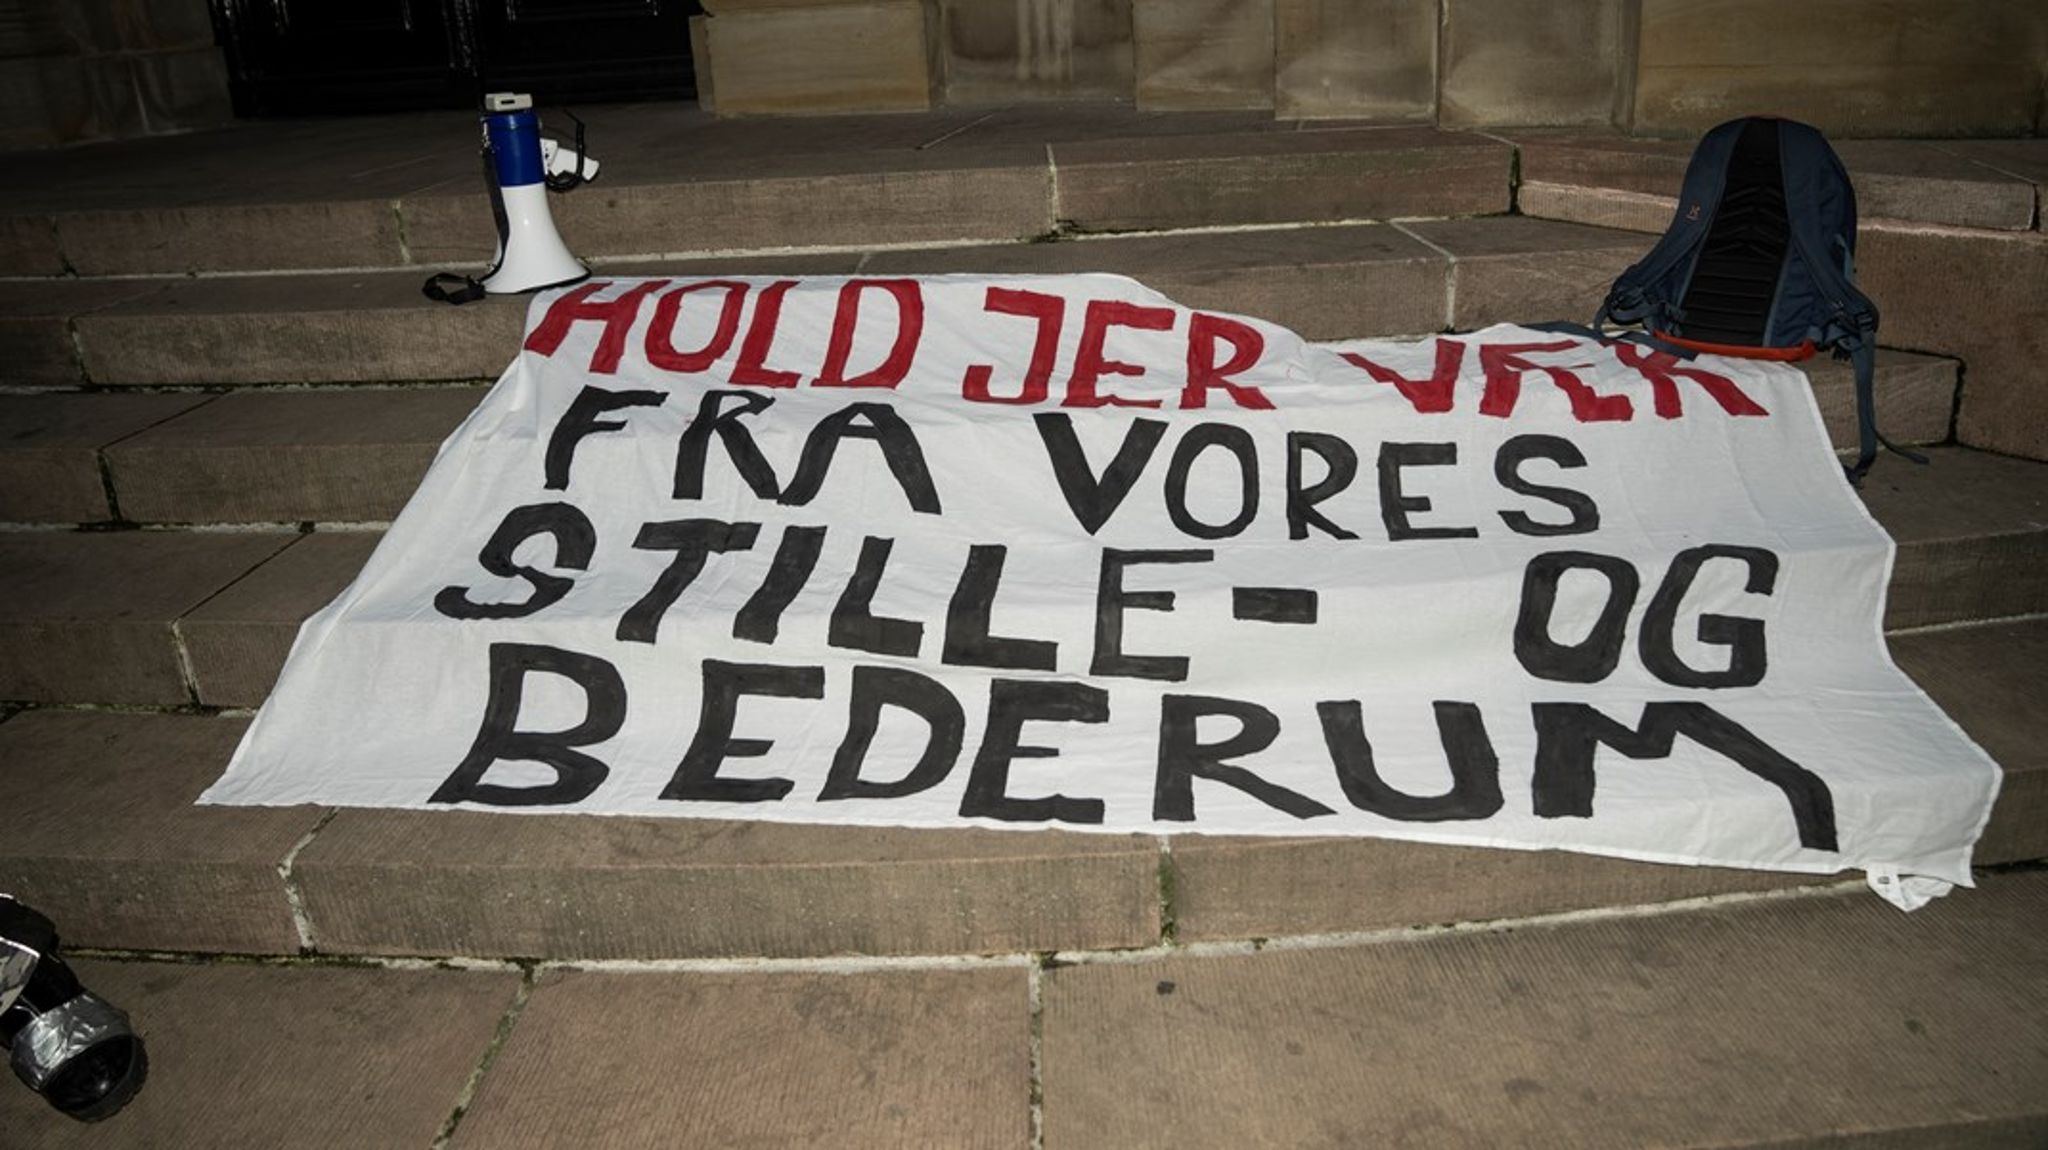 HOLD JER VÆK
FRA VORES
STILLE- OG
BEDERUM